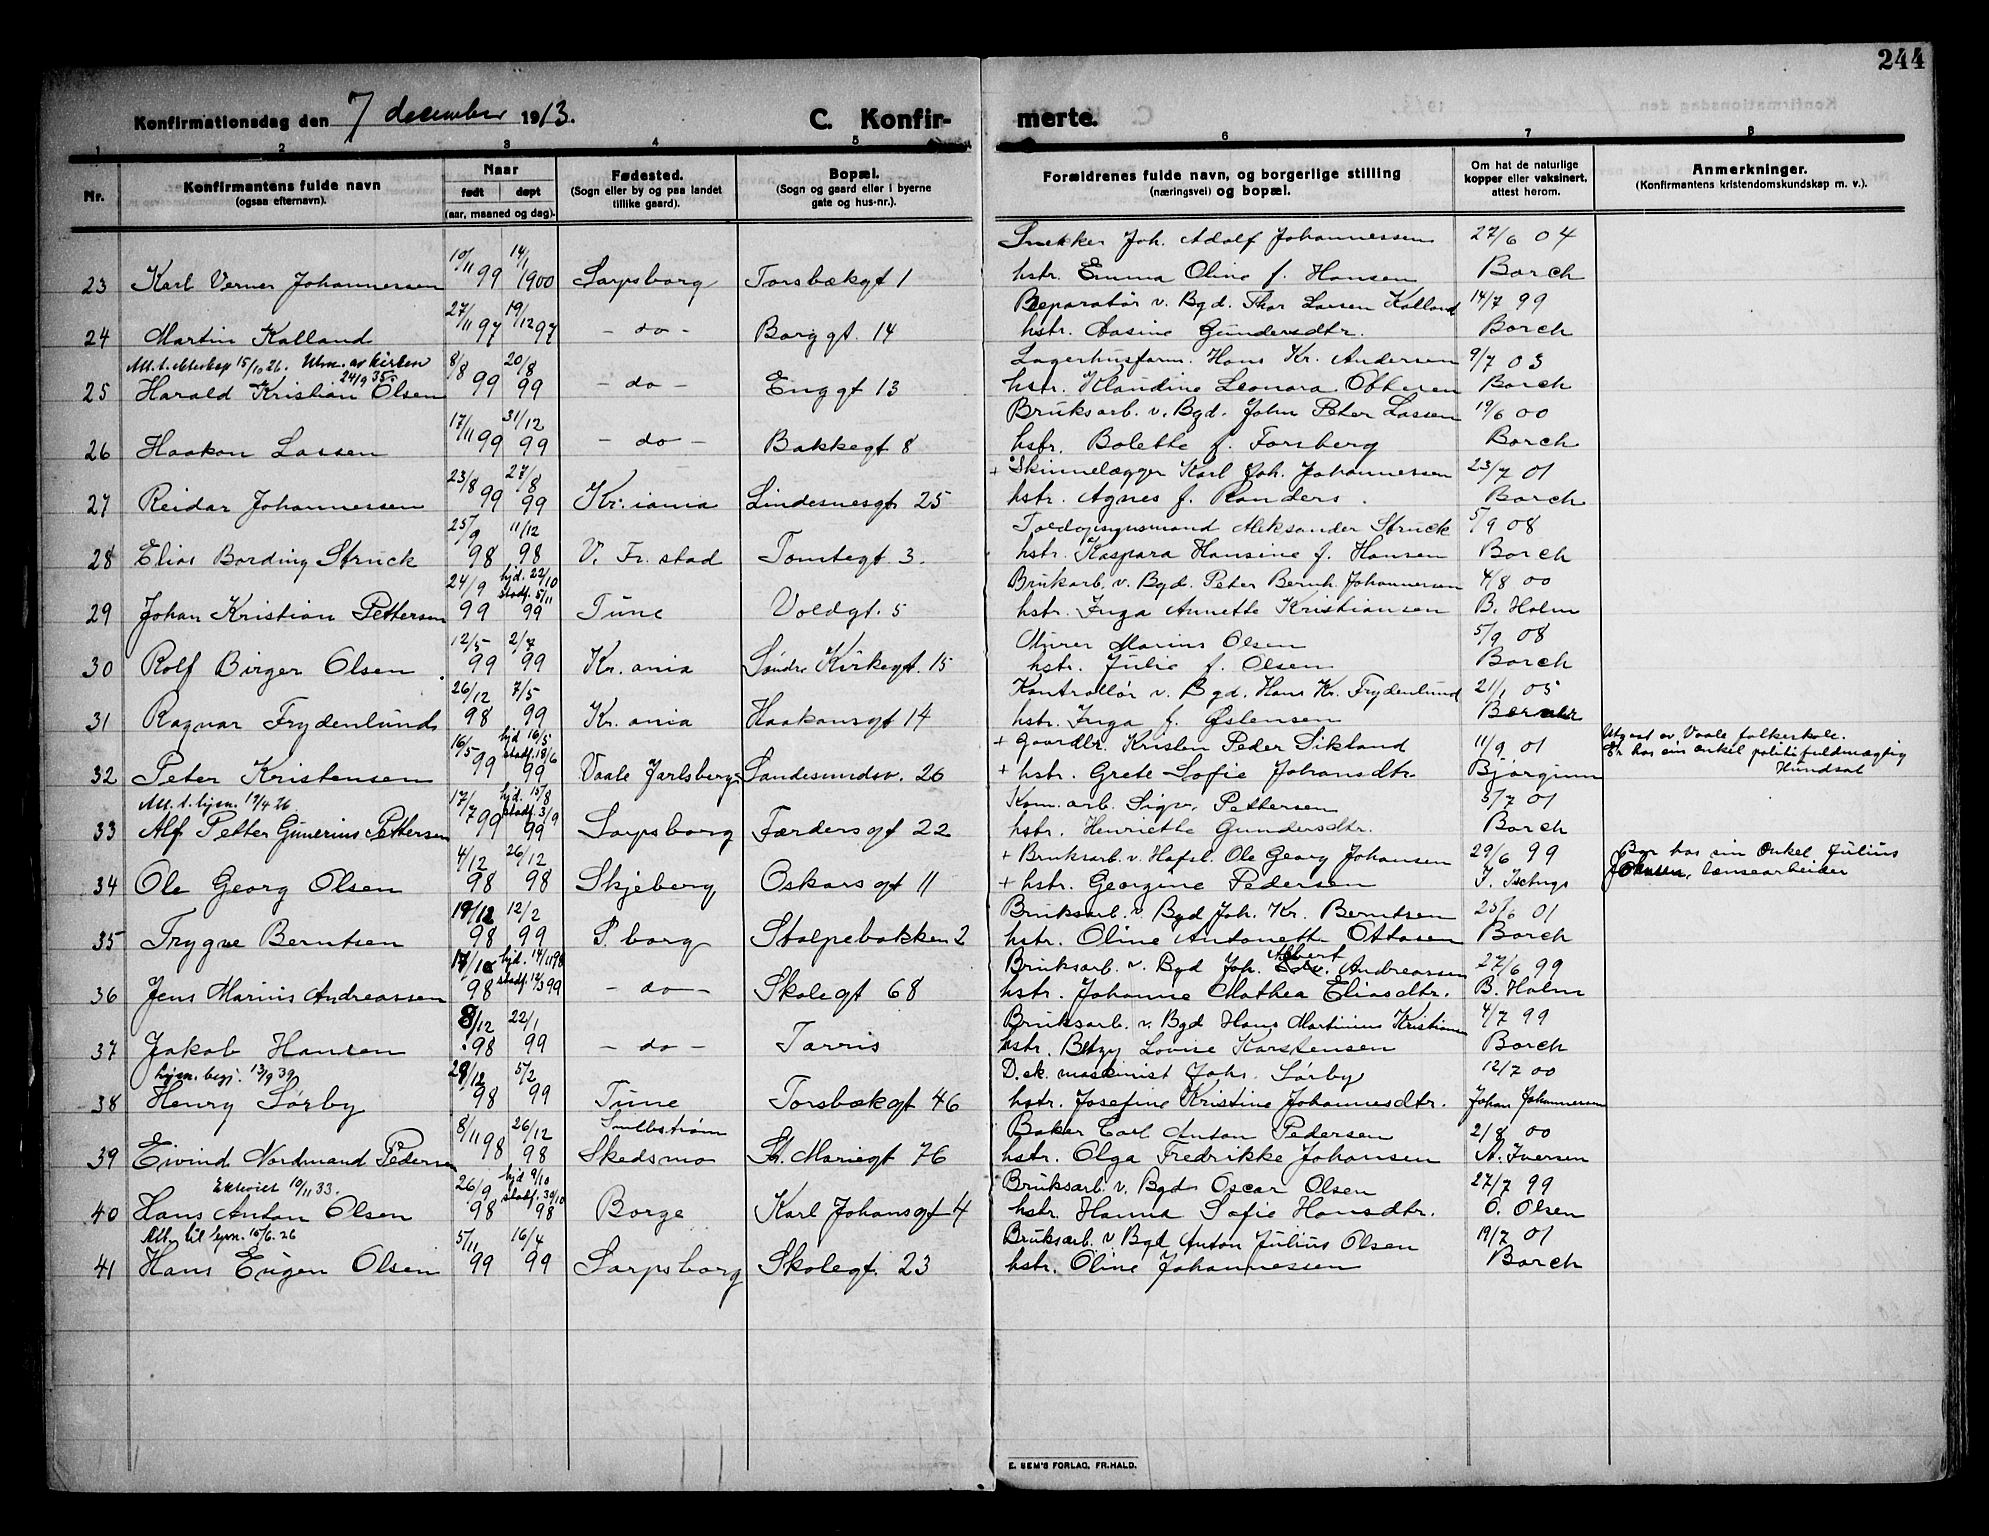 244
Konfirmationsdag den 7 december 1913. C. Konfir- merte.
1 2 3 4 5 6 7 8
Nr. Konfirmantens fulde navn (ogsaa efternavn). Naar født døpt (aar, maaned og dag). Fødested. (Sogn eller by og paa landet tillike gaard). Bopæl. (Sogn og gaard eller i byerne gate og hus-nr.). Forældrenes fulde navn, og borgerlige stilling (næringsvei) og bopæl. Om hat de naturlige kopper eller vaksinert, attest herom. Anmerkninger. (Konfirmantens kristendomskundskap m. v.).
10/11 14/1 Snekker Joh. Adolf Johannessen 27/6 04
23 Karl Verner Johannessen 99 1900 Sarpsborg Torsbækgt 1 hstr. Emma Oline f. Hansen Borch
27/11 19/12 Reparatør v. Bgd. Thor Larsen Kalland 14/7 99
24 Martin Kalland 97 97 - do - Borggt. 14 hstr. Aasine Gundersdtr. Borch
Att. t. ekteskap 15/10 26. Utm. av kirken 24/9 35. 8/8 20/8 Lagerhusform. Hans Kr. Andersen 9/7 03
25 Harald Kristian Olsen 99 99 - do - Enggt 13 hstr. Klaudine Leonora Ottesen Borch
17/11 31/12 Bruksarb. v. Bgd. John Peter Lassen 19/6 00
26 Haakon Lassen 99 99 - do - Bakkegt 8 hstr. Bolette f. Forsberg Borch
23/8 27/8 + Skinnelægger Karl Joh. Johannessen 23/7 01
27 Reidar Johannessen 99 99 Kr:iania Lindesnesgt 25 hstr. Agnes f. Randers. Borch
25/9 11/12 Toldopsynsmand Aleksander Struck 5/9 08
28 Elias Bording Struck 98 98 V. Fr.stad Tomtegt 3. hstr. Kaspara Hansine f. Hansen Borch
24/9 hjd. 22/10 stadf. 5/11 Bruksarb. v. Bgd. Peter Bernh. Johannessen 4/8 00
29 Johan Kristian Pettersen 99 99 Tune Voldgt. 5 hstr. Inga Annette Kristiansen B. Holm
12/5 2/7 Murer Marius Olsen 5/9 08
30 Rolf Birger Olsen 99 99 Kr.ania Søndre Kirkegt. 15 hstr. Julie f. Olsen Borch
26/12 7/5 Kontrollør v. Bgd. Hans Kr. Frydenlund 21/1 05
31 Ragnar Frydenlund 98 99 Kr.ania Haakonsgt 14 hstr. Inga f. Østensen
16/5 hjd 16/5 stadf. 18/6 + Gaardbr. Kristen Peder Sikland 11/9 01 Utgaat av Vaale folkeskole.
32 Peter Kristensen 99 99 Vaale Jarlsberg Sandesundsv. 26 + hstr. Grete Sofie Johansdtr. Er hos sin onkel politifuldmægtig
Att. t. lysn. 19/4 26 17/7 hjd. 15/8 stadf. 3/9 Kom.arb. Sigv. Pettersen 5/7 01
33 Alf Petter Gunerius Pettersen 99 99 Sarpsborg Færdersgt 22 hstr. Henriette Gundersdtr. Borch
4/12 26/12 + Bruksarb. v. Hafsl. Ole Georg Johansen 29/6 99 Bor hos sin Onkel Julius
34 Ole Georg Olsen 98 98 Skjeberg Oskarsgt 11 + hstr. Georgine Pedersen Johansen, lænsearbeider
19/12 12/2 Bruksarb. v. Bgd Joh. Kr. Berntsen 25/6 01
35 Trygve Berntsen 98 99 S.borg Stolpebakken 2 hstr. Oline Antonette Ottosen Borch
17/10 hjd. 14/11 98 stadf. 12/3 99 Bruksarb. v. Bgd Joh. Albert Andreassen 27/6 99
36 Jens Marius Andreassen 98 - do - Skolegt 68 hstr. Johanne Mathea Eliasdtr. B. Holm
8/12 22/1 Bruksarb. v. Bgd Hans Martinius Kristiansen 4/7 99
37 Jakob Hansen 98 99 - do - Tarris hstr. Betzy Lovise Karstensen Borch
Lysn. begj. 13/9 39 29/12 5/2 D.sk. maskinist Johs. Sørby 12/7 00
38 Henry Sørby 98 99 Tune Torsbækgt 46 hstr. Josefine Kristine Johannesdtr. Johan Johannessen
8/11 26/12 Baker Carl Anton Pedersen 2/8 00
39 Eivind Nordmand Pedersen 98 98 Skedsmo St. Mariegt 76 hstr. Olga Fredrikke Johansen A. Iversen
10/11 33. 26/9 hjd 9/10 stadf. 30/10 Bruksarb. v. Bgd Oscar Olsen 27/7 99
40 Hans Anton Olsen 98 98 Borge Karl Johansgt 4 hstr. Hanna Sofie Hansdtr. O. Olsen
Att. til lysn. 15/6. 26 5/11 16/4 Bruksarb. v Bgd Anton Julius Olsen 19/7 01
41 Hans Eugen Olsen 99 99 Sarpsborg Skolegt. 23 hstr. Oline Johannessen Borch
E. SEM'S FORLAG, FR.HALD.